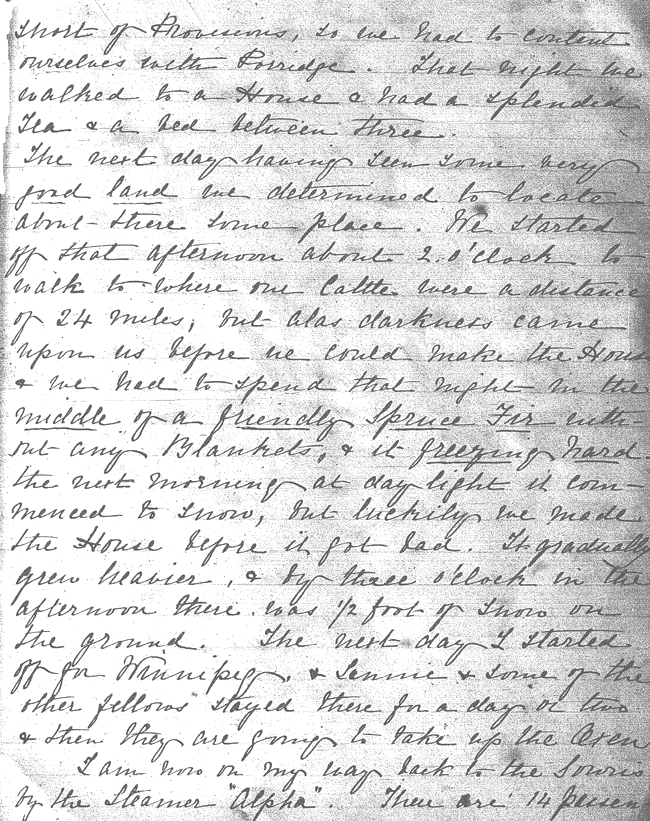 short of Provisions, so we had to content
ourselves with Porridge. That night we
walked to a House & had a splendid
Tea & a bed between three.
The next day having seen some very
good land we determined to locate
about there some place. We started
off that afternoon about 2 o'clock to
walk to where our Cattle were a distance
of 24 miles, but alas darkness came
upon us before we could make the House
& we had to spend that night in the
middle of a friendly Spruce Fir with-
out any Blankets, & it freezing hard.
the next morning at day light it com-
menced to snow, but luckily we made
the House before it got bad. It gradually
grew heavier, & by three o'clock in the
afternoon there was 1/2 foot of snow on
the ground. The next day I started
off for Winnipeg, & Lennie & some of the
other fellows stayed there for a day or two
& then they are going to take up the Oxen
I am now on my way back to the Souris
by the Steamer "Alpha". There are 14 passen